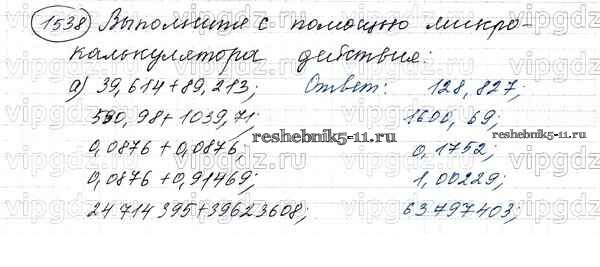 1538 Выполните с помощью микро-
калькулятора действия:
а) 39,614+89,213; Ответ: 128,827;
560,98+1039,71; 1600,69;
reshebnik5-11.ru reshebnik5-11.ru
0,0876+0,0876; 0,1752;
0,0876+0,91469; 1,00229;
24 714 395+39623608; 63 797403;
vipgdz.ru